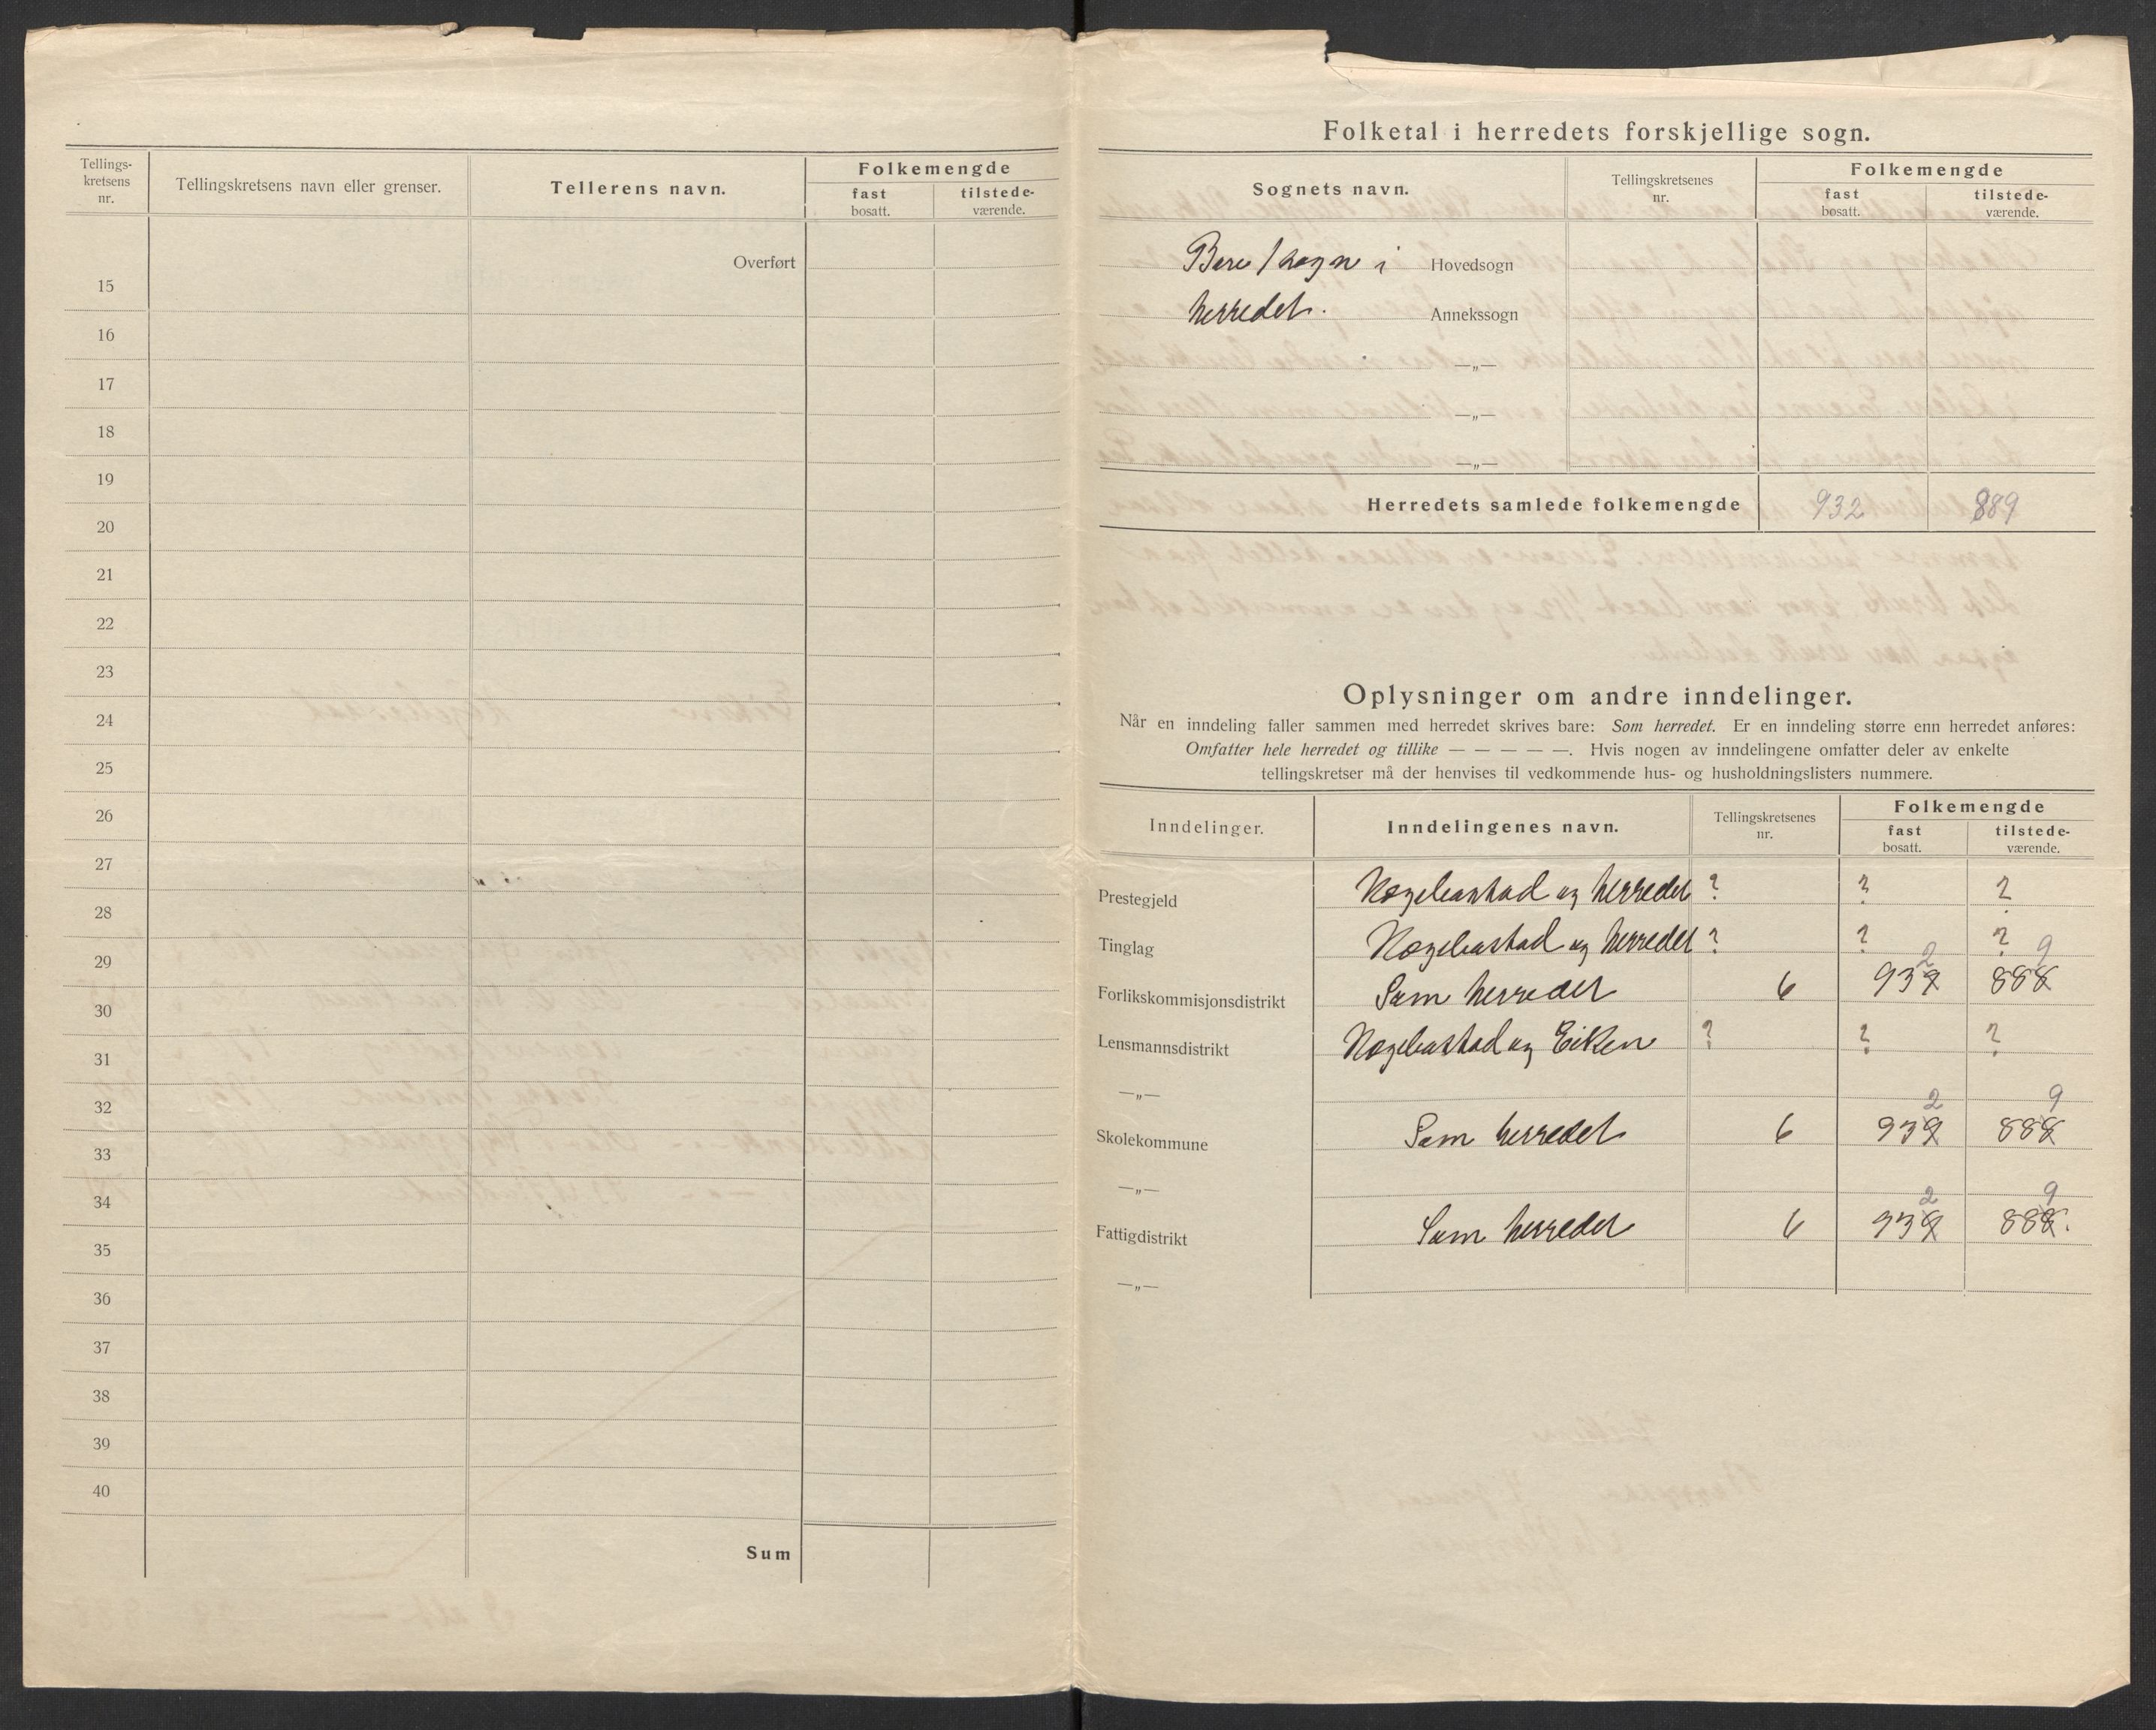 Tellings-
kretsens
nr.
Tellingskretsens navn eller grenser.
Tellerens navn.
Folkemengde
fast
bosatt.
tilstede-
værende.
Overført
15
16
17
18
19
20
21
22
23
24
25
26
27
28
29
30
31
32
33
34
35
36
37
38
39
40
Sum
Folketal i herredets forskjellige sogn.
Sognets navn.
Tellingskretsenes
nr.
Folkemengde
fast
bosatt.
tilstede-
værende.
Bare 1 sogn i Hovedsogn
herredet. Annekssogn
—„—
—„—
—„—
Herredets samlede folkemengde 932 889
Oplysninger om andre inndelinger.
Når en inndeling faller sammen med herredet skrives bare: Som herredet. Er en inndeling større enn herredet anføres:
Omfatter hele herredet og tillike — — — — —. Hvis nogen av inndelingene omfatter deler av enkelte
tellingskretser må der henvises til vedkommende hus- og husholdningslisters nummere.
Inndelinger.
Inndelingenes navn.
Tellingskretsenes
nr.
Folkemengde
fast
bosatt.
tilstede-
værende.
Prestegjeld Hægebostad og herredet ? ? ?
Tinglag Hægebostad og herredet ? ? ?
2 9
Forlikskommisjonsdistrikt Som herredet 6 939 888
Lensmannsdistrikt Hægebostad og Eiken ? ? ?
—„—
2 9
Skolekommune Som herredet 6 939 888
—„—
2 9
Fattigdistrikt Som herredet 6 939 888.
—„—